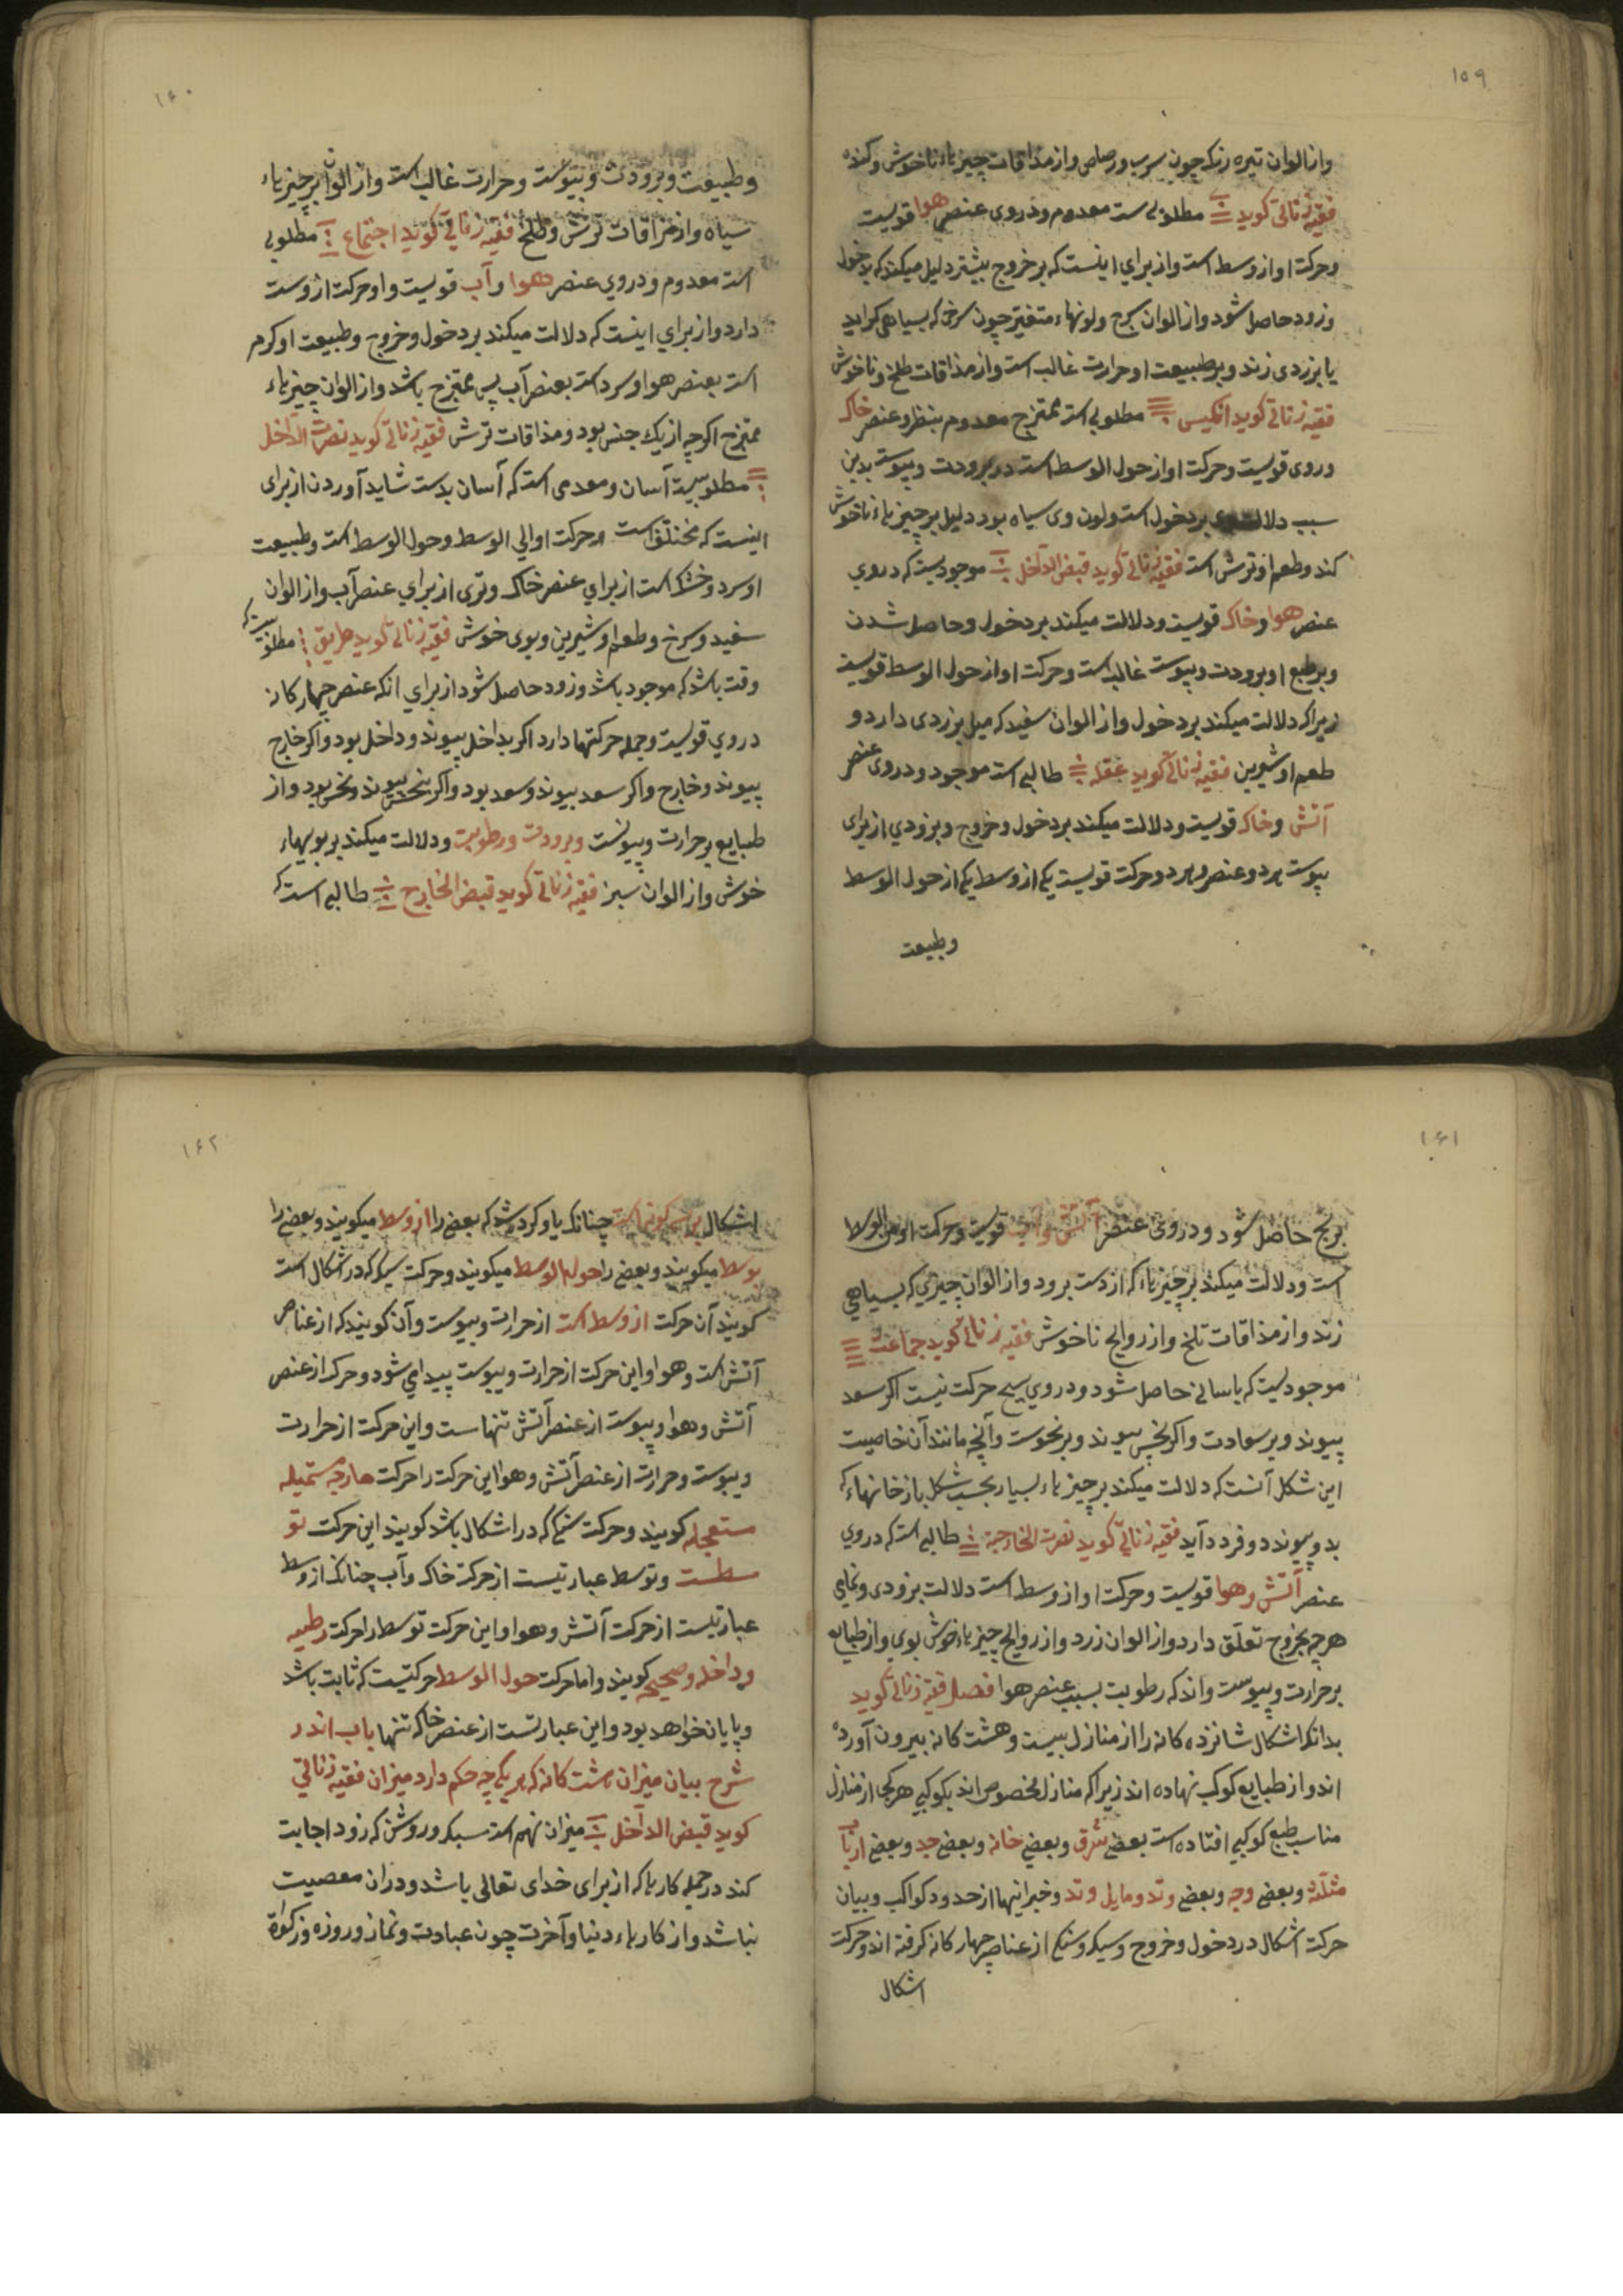 ۱۵۹
واز الوان تیره رنک چون سرب ورصاص واز مذاقات چیزهاء ناخوش وکنده
فقیه زناتی کوید مطلوبی ست معدوم ودروی عنصر هوا قویست
وحرکت او از وسط است واز برای اینست که بر خروج بیشتر دلیل میکند که بدخول
وزود حاصل شود واز الوان سرخ ولونهاء متغیر چون سرخی که بسیاهی کراید
یا بزردی زند وبر طبیعت او حرارت غالب است واز مذاقات طلخ وناخوش
فقیه زناتی کوید انکیس مطلوبی است ممتزج معدوم بنظر وعنصر خاک
دروی قویست وحرکت او از حول الوسط است در برودت ویبوست بدین
سبب دلالت وی بر دخول است ولون وی سیاه بود دلیل بر چیزهاء ناخوش
کند وطعم او ترش است فقیه زناتی کوید قبض الداخل موجودیست که دروی
عنصر هوا وخاک قویست ودلالت میکند بر دخول وحاصل شدن
وبر طبع او برودت ویبوست غالب است وحرکت او از حول الوسط قویست
زیراکه دلالت میکند بر دخول واز الوان سفید که میل بزردی دارد و
طعم او شیرین فقیه زناتی کوید عقله طالبی است موجود ودروی عنصر
آتش وخاک قویست ودلالت میکند بر دخول وخروج وبزودی از برای
پیوست هر دو عنصر وهر دو حرکت قویست یکی از وسط یکی از حول الوسط
وطبیعت
۱۶۰
وطبیعت وبرودت ویبوست وحرارت غالب است واز الوان بر چیزهاء
سیاه واز مذاقات ترش وطلخ فقیه زناتی کوید اجتماع مطلوبی
است معدوم ودروی عنصر هوا وآب قویست واو حرکت از وسط
دارد واز برای اینست که دلالت میکند بر دخول وخروج وطبیعت او کرم
است بعنصر هوا وسرد است بعنصر آب پس ممتزج باشد واز الوان چیزهاء
ممتزج اکرچه از یک جنس بود ومذاقات ترش فقیه زناتی کوید نصرت الداخل
مطلوبیست آسان ومعدمی است که آسان بدست شاید آوردن از برای
اینست که مختلف است در حرکت اوالی الوسط وحول الوسط است وطبیعت
او سرد وخشک است از برای عنصر خاک وتری از برای عنصر آب واز الوان
سفید وسرخ وطعم او شیرین وبوی خوش فقیه زناتی کوید طریق مطلوبیست که
وقت باشد که موجود باشد وزود حاصل شود از برای انکه عنصر چهارکانه
دروی قویست وجمله حرکتها دارد اکر بداخل پیوند وداخل بود واکر خارج
پیوند وخارج واکر سعد پیوند وسعد بود واکر بنحس پیوند ونحس بود واز
طبایع بر حرارت ویبوست وبرودت ورطوبت ودلالت میکند بر بویهاء
خوش واز الوان سبز فقیه زناتی کوید قبض الخارج طالبی است که
۱۶۱
برنج حاصل شود ودروی عنصر آتش وآب قویست وحرکت او من الوسط
است ودلالت میکند بر چیزهاء که از دست برود واز الوان چیزی که بسیاهی
زند واز مذاقات تلخ واز روایح ناخوش فقیه زناتی کوید جماعت
موجودیست که باسانی حاصل شود ودروی هیچ حرکت نیست اکر سعد
پیوند وبر سعادت واکر بنحس پیوند وبر نحوست وآنچه مانند آن خاصیت
این شکل آنست که دلالت میکند بر چیزهاء بسیار بحسب شکل باز خانهاء که
بدو پیوندد وفرد آید فقیه زناتی کوید نصرت الخارجیة طالبی است که دروی
عنصر آتش وهوا قویست وحرکت او از وسط است دلالت بزودی وتمامی
هرچه بخروج تعلق دارد واز الوان زرد واز روایح چیزهاء خوش بوی واز طبایع
بر حرارت ویبوست واندکه رطوبت بسبب عنصر هوا فصل فقیه زناتی کوید
بدانکه اشکال شانزده کانه را از منازل بیست وهشت کانه بیرون آورده
اند واز طبایع کوکب نهاده اند زیراکه منازل مخصوص اند بکوکبی هر یکی از منازل
مناسب طبع کوکبی افتاده است بعضی شرق وبعضی خانه وبعضی حد وبعضی ارباب
مثلثه وبعضی وجه وبعضی وتد ومایل وتد وخبر اینها از حدود کواکب وبیان
حرکت اشکال در دخول وخروج وسبک وسنکی از عناصر چهارکانه کرفته اند وحرکت
اشکال
۱۶۲
اشکال بر سه کونه است چنانکه یاد کرده شد که بعضی را از وسط میکویند وبعضی را
بوسط میکویند وبعضی را حول الوسط میکویند وحرکت سبک که در اشکال است
کویند آن حرکت از وسط است از حرارت ویبوست وآن کویند که از عناصر
آتش است وهوا واین حرکت از حرارت ویبوست پیدای شود وحرکه از عنصر
آتش وهوا ویبوست از عنصر آتش تنهاست واین حرکت از حرارت
ویبوست وحرارت از عنصر آتش وهوا این حرکت را حرکت خارجه مستمیله
مستعجله کویند وحرکت سنکی که در اشکال باشد کویند این حرکت تو
سطست وتوسط عبارتیست از حرکت خاک وآب چنانکه از وسط
عبارتیست از حرکت آتش وهوا واین حرکت توسط را حرکت رطبیه
وداخله وصحیحه کویند واما حرکت حول الوسط حرکتیست که ثابت باشد
وپایان خواهد بود واین عبارتست از عنصر خاکه تنها باب اندر
شرح بیان میزان هشت کانه که هر یکی چه حکم دارد میزان فقیه زناتی
کوید قبض الداخل میزان نهم است سبک وروشن که زود اجابت
کند در جمله کارها که از برای خدای تعالی باشد ودران معصیت
نباشد واز کارهاء دنیا وآخرت چون عبادت ونماز وروزه وزکوة